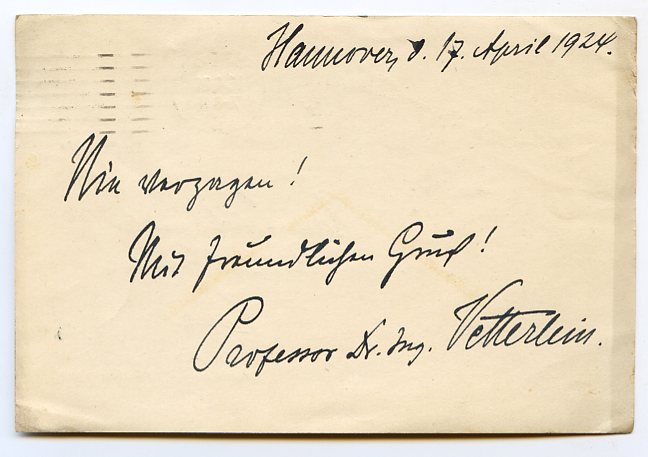 Hannover, d. 17. April 1924.
Nie verzagen!
Mit freundlichen Gruß!
Professor Dr. Ing. Vetterlein.